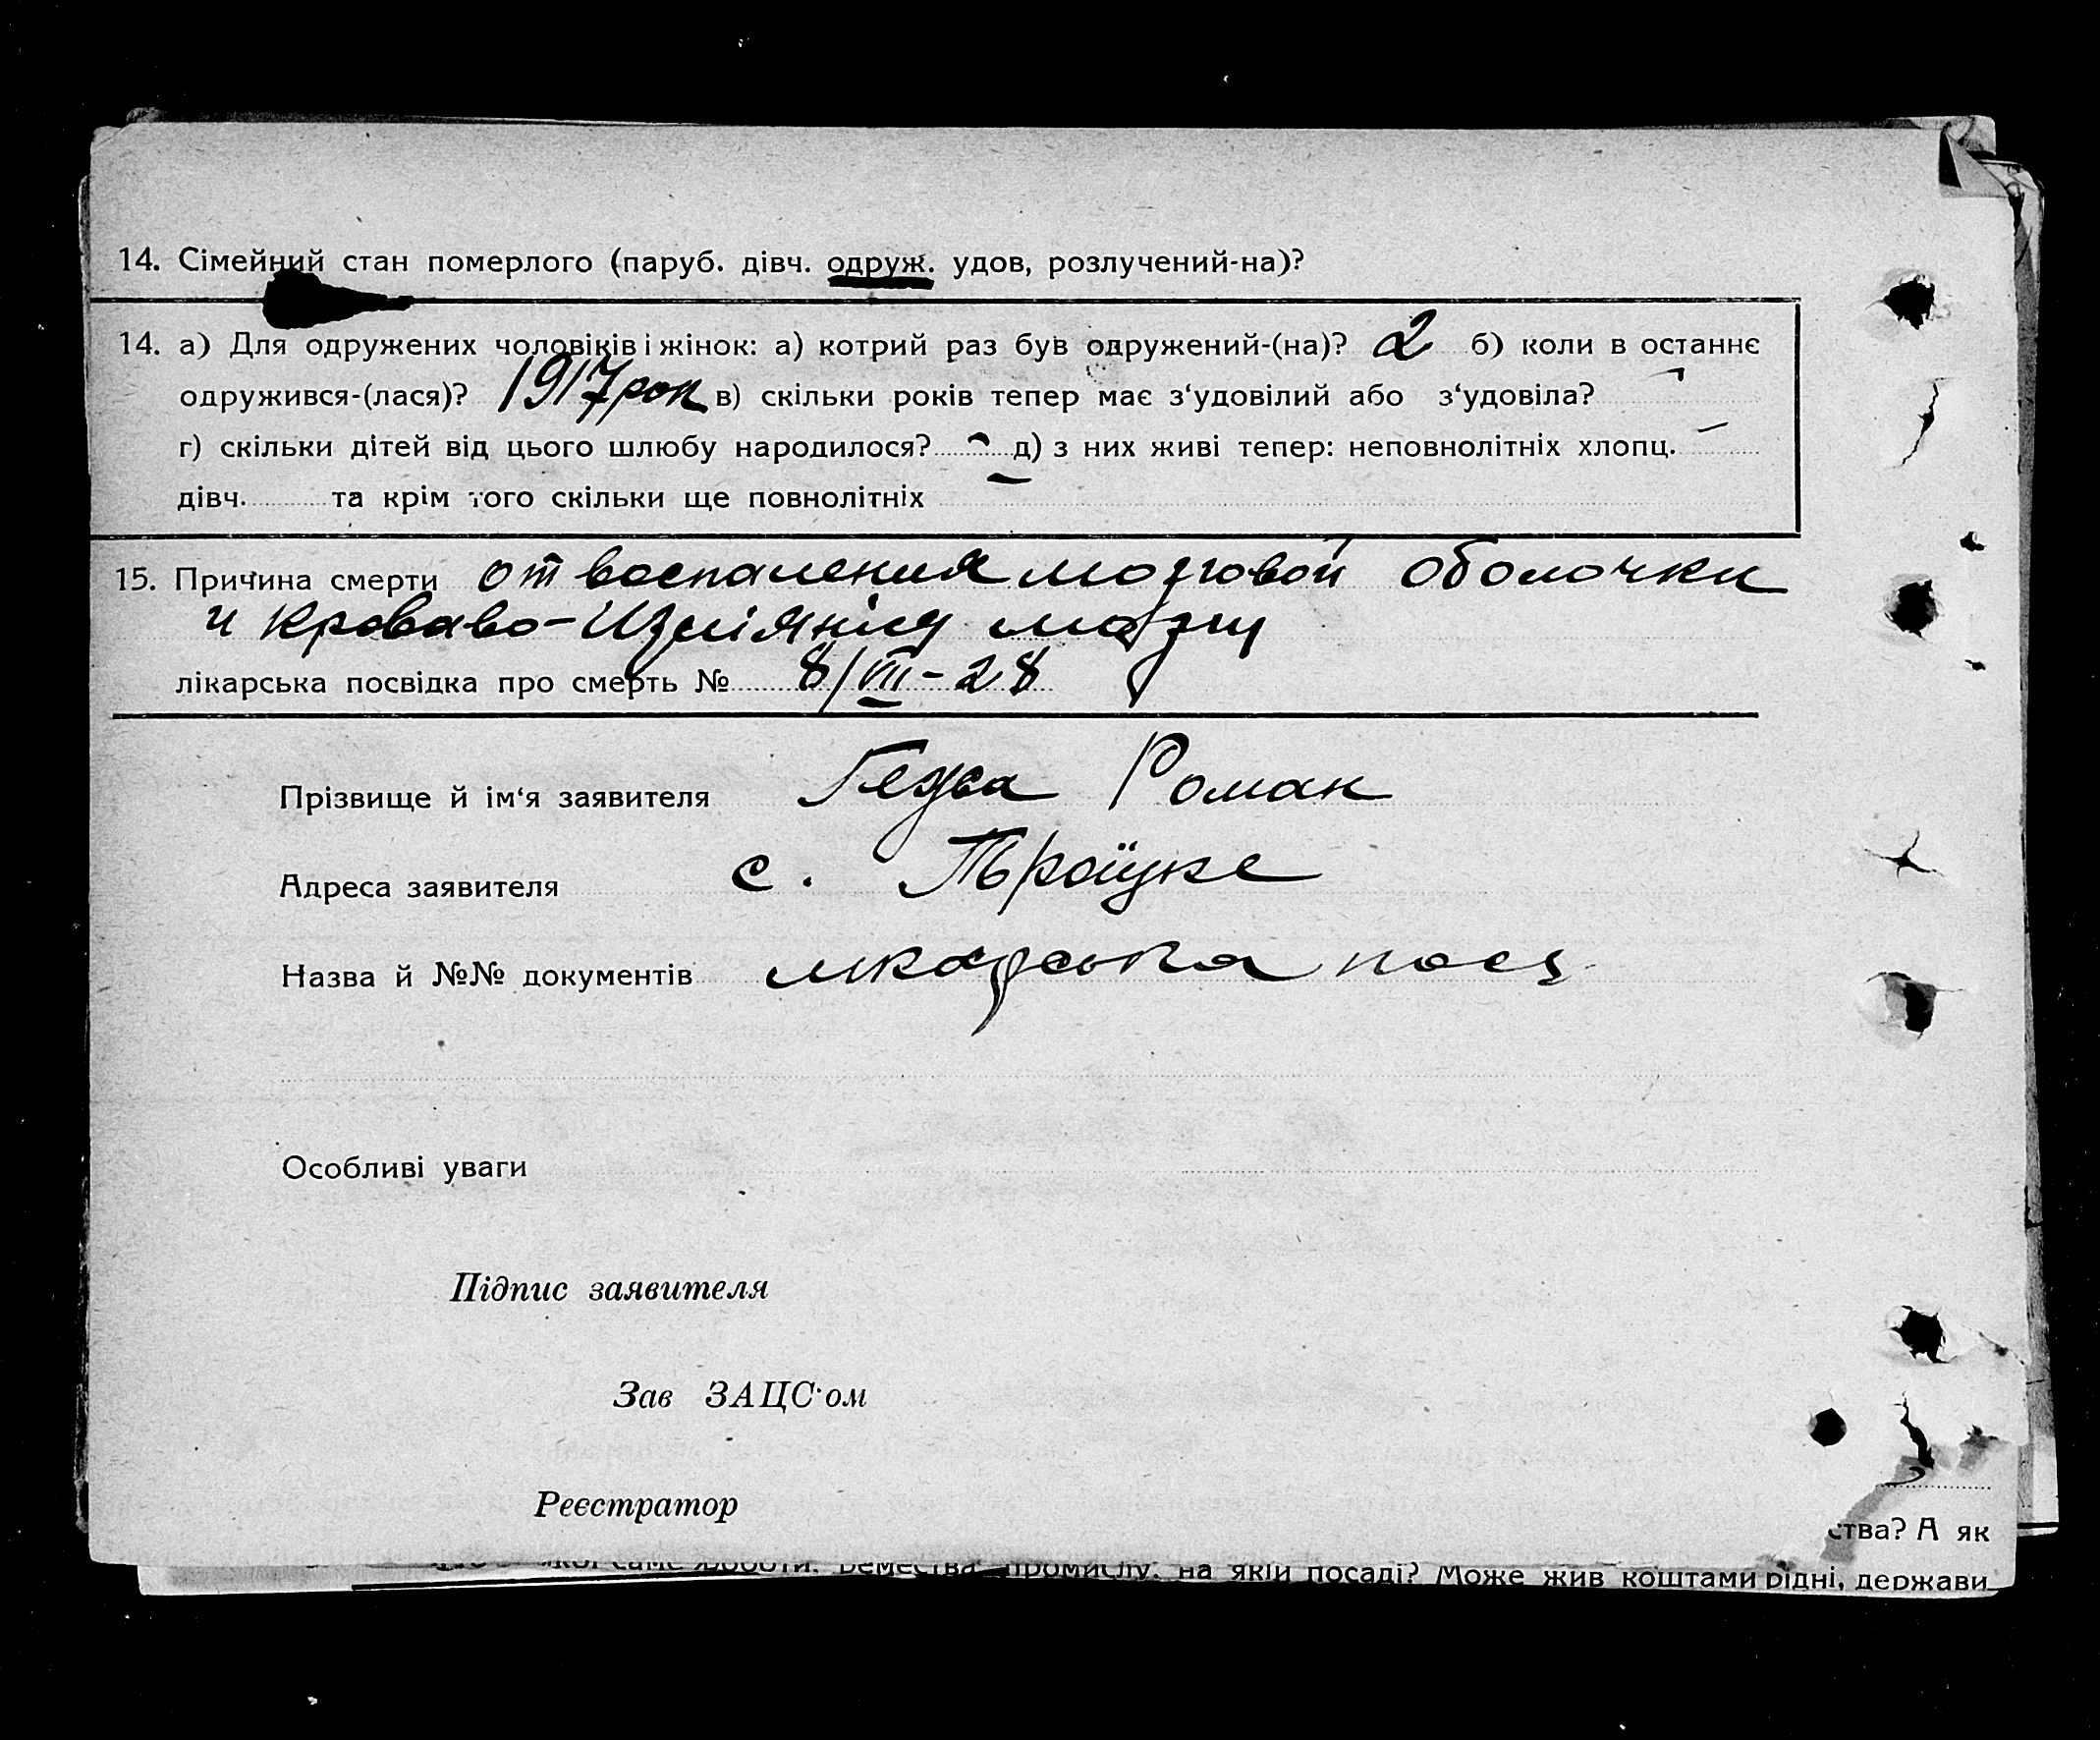 14. Сімейний стан померлого (паруб. дівч. одруж. удов, розлучений-на)?
14. а) Для одружених чоловіків і жінок: а) котрий раз був одружений-(на)? 2 б) коли в останнє
одружився-(лася)? 1917 рок в) скільки років тепер має з‘удовілий або з‘удовіла? -
г) скільки дітей від цього шлюбу народилося? - д) з них живі тепер: неповнолітніх хлопц. -
дівч. та крім того скільки ще повнолітніх -
15. Причина смерти от воспаления мозговой оболочки
и кроваво-Изліяния мозгу
лікарська посвідка про смерть № 8/VIII-28
Прізвище й ім‘я заявителя Роман
Адреса заявителя с. Троїцке
Назва й №№ документів лікарська посв
Особливі уваги
Підпис заявителя
Зав ЗАЦС‘ом
Реєстратор
ства? А як
якої саме роботи, ремества промислу, на якій посаді? Може жив коштами рідні, держави